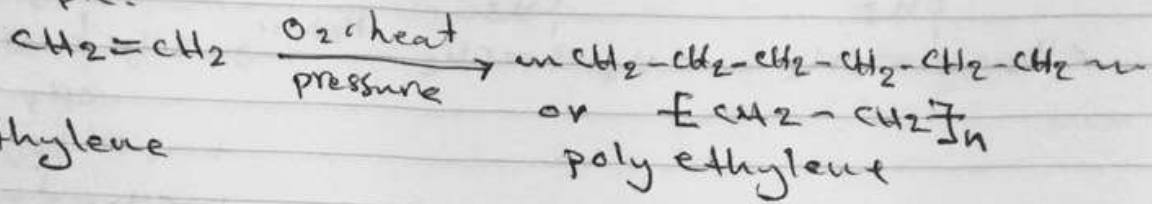 CH2=CH2 O2, heat pressure → ~CH2-CH2-CH2-CH2-CH2-CH2~
or [CH2-CH2]n
hylene poly ethylene